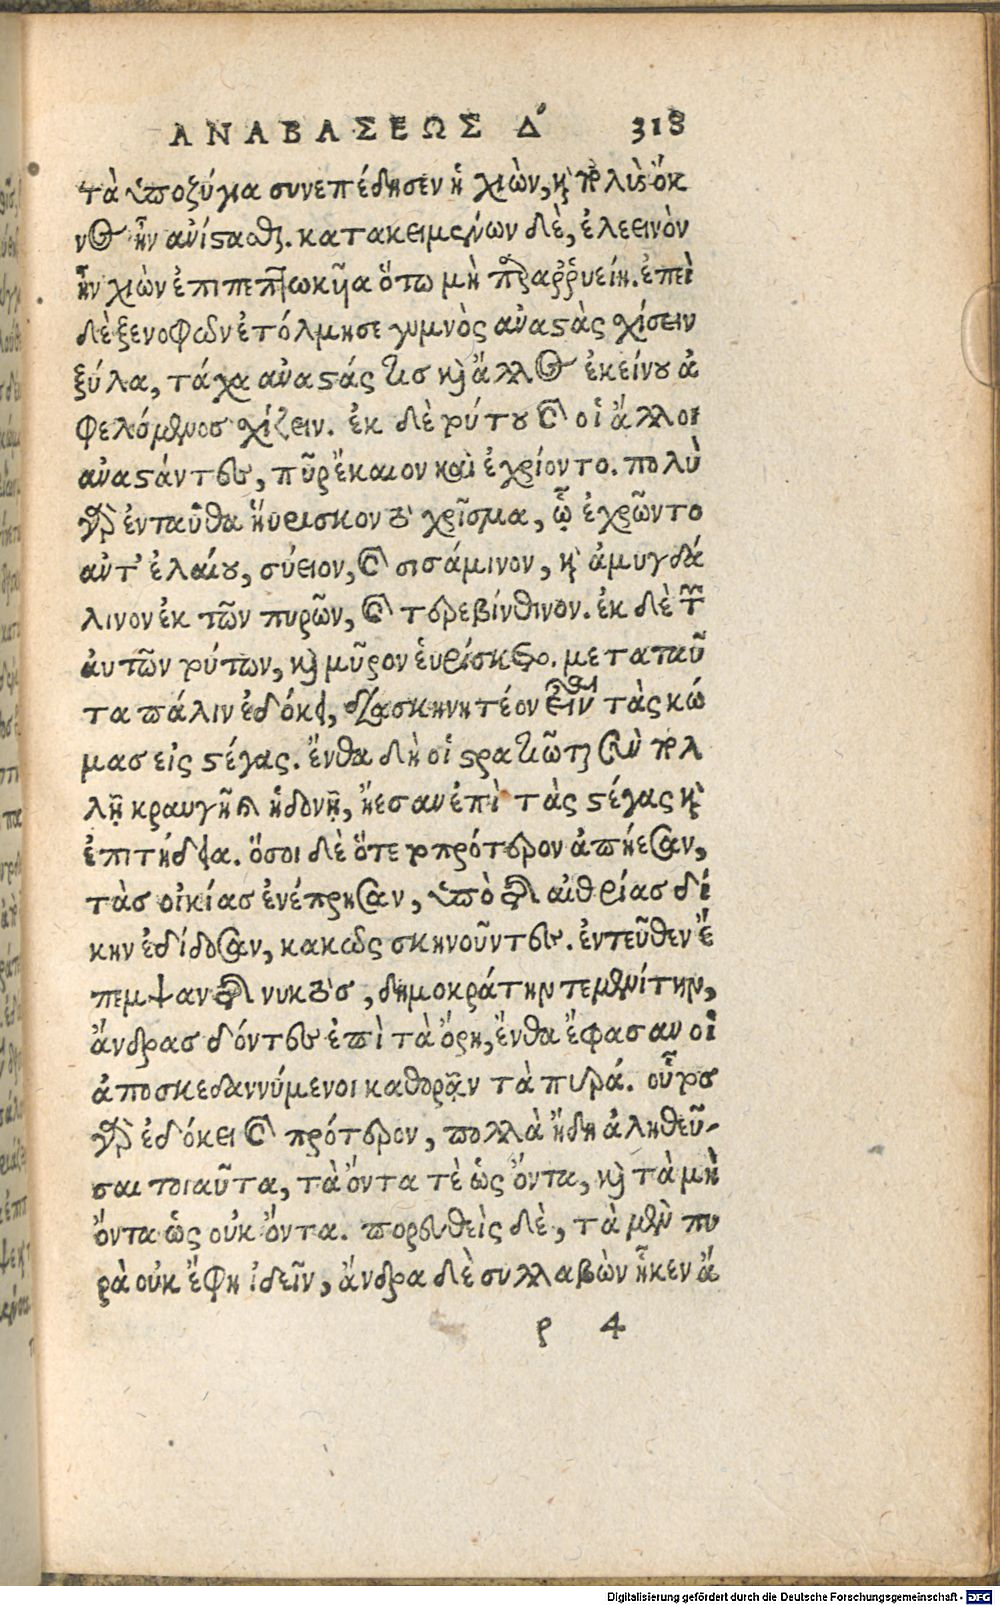 ΑΝΑΒΑΣΕΩΣ Δ΄ 318
τὰ ὑποζύγια συνεπέδησεν ἡ χιὼν, καὶ πολὺς ὄκ
νος ἦν ἀνίστασθαι. κατακειμένων δὲ, ἐλεεινὸν
ἦν χιὼν ἐπιπεπτωκῆα ὅτω μὴ παραῤῥυείη. ἐπεὶ
δὲ ξενοφῶν ἐτόλμησε γυμνὸς ἀναστὰς σχίσειν
ξύλα, τάχα ἀναστάς τισ καὶ ἄλλος ἐκείνου ἀ
φελόμενοσ σχίζειν. ἐκ δὲ τούτου καὶ οἱ ἄλλοι
ἀναστάντες, πῦρ ἔκαιον καὶ ἐχρίοντο. πολὺ
γὰρ ἐνταῦθα ἡύρισκον τὸ χρῖσμα, ᾧ ἐχρῶντο
ἀντ' ἐλαίου, σύειον, καὶ σισάμινον, καὶ ἀμυγδά
λινον ἐκ τῶν πυρῶν, καὶ τερεβίνθινον. ἐκ δὲ τῶν
ἀυτῶν τούτων, καὶ μῦρον ἑυρίσκετο. μετα ταῦ
τα πάλιν ἐδόκει, διασκηνητέον εἶναι τὰς κώ
μασ εἰς στέγας. ἔνθα δὴ οἱ στρατιῶται σὺν πολ
λῇ κραυγῇ καὶ ἡδονῇ, ἤεσαν ἐπὶ τὰς στέγας καὶ
ἐπιτήδεια. ὅσοι δὲ ὅτε τοπρότερον ἀπήεσαν,
τὰσ οἰκίασ ἐνέπρησαν, ὑπὸ τῆς αἰθρίασ δί
κην ἐδίδοσαν, κακῶς σκηνοῦντες. ἐντεῦθεν ἔ
πεμψαν τῆς νυκτὸσ, δημοκράτην τεμενίτην,
ἄνδρασ δόντες ἐπὶ τὰ ὄρη, ἔνθα ἔφασαν οἱ
ἀποσκεδαννύμενοι καθορᾷν τὰ πυρά. οὗτοσ
γὰρ ἐδόκει καὶ πρότερον, πολλὰ ἤδη ἀληθεῦ-
σαι τοιαῦτα, τὰ ὄντα τὲ ὡς ὄντα, καὶ τὰ μὴ
ὄντα ὡς οὐκ ὄντα. πορευθεὶς δὲ, τὰ μὲν πυ
ρὰ οὐκ ἔφη ἰδεῖν, ἄνδρα δὲ συλλαβὼν ἧκεν ἄ
ρ 4
Digitalisierung gefördert durch die Deutsche Forschungsgemeinschaft - DFG